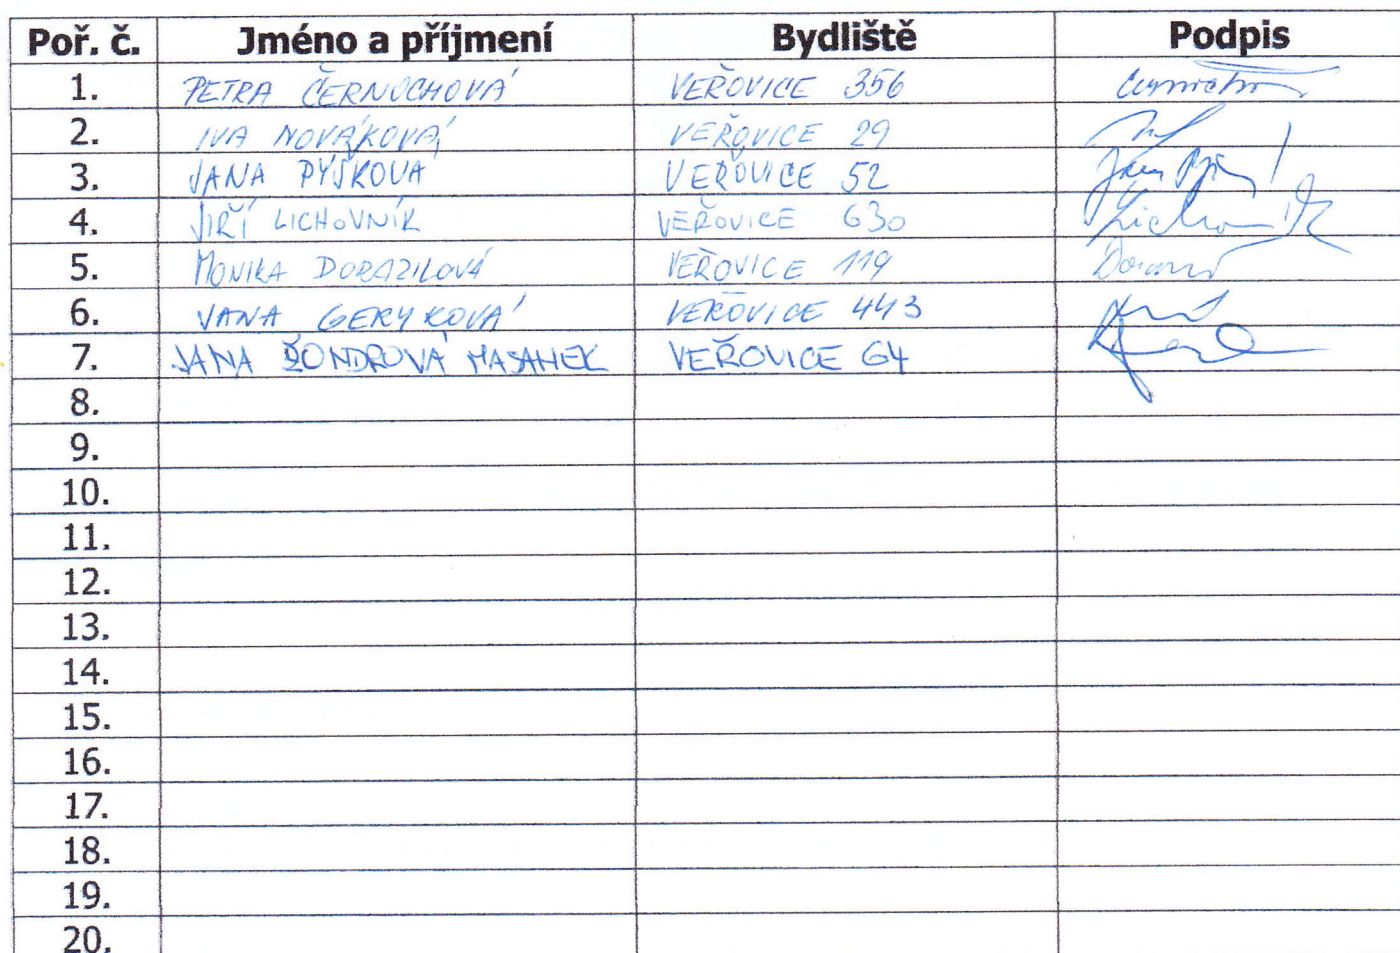 Poř. č. Jméno a příjmení Bydliště Podpis
1. PETRA ČERNOCHOVÁ VEŘOVICE 356
2. IVA NOVÁKOVÁ VEŘOVICE 29
3. JANA PÝŠKOVA VEŘOVICE 52
4. JIŘÍ LICHOVNÍK VEŘOVICE 630
5. MONIKA DORAZILOVÁ VEŘOVICE 119
6. JANA GERYKOVÁ VEŘOVICE 443
7. JANA ŽONDROVÁ MASAHEK VEŘOVICE 64
8.
9.
10.
11.
12.
13.
14.
15.
16.
17.
18.
19.
20.